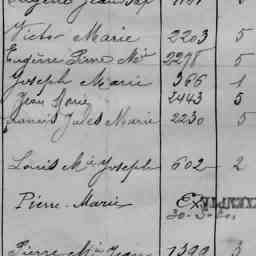 Victor Marie 2203 5
Eugène Pierre Mie 2298 5
Joseph Marie 366 1
Jean Marie 2443 5
Francis Jules Marie 2230 5
Louis Mie Joseph 602 2
Pierre-Marie Ex.
Pierre Mie Jean 1399 3